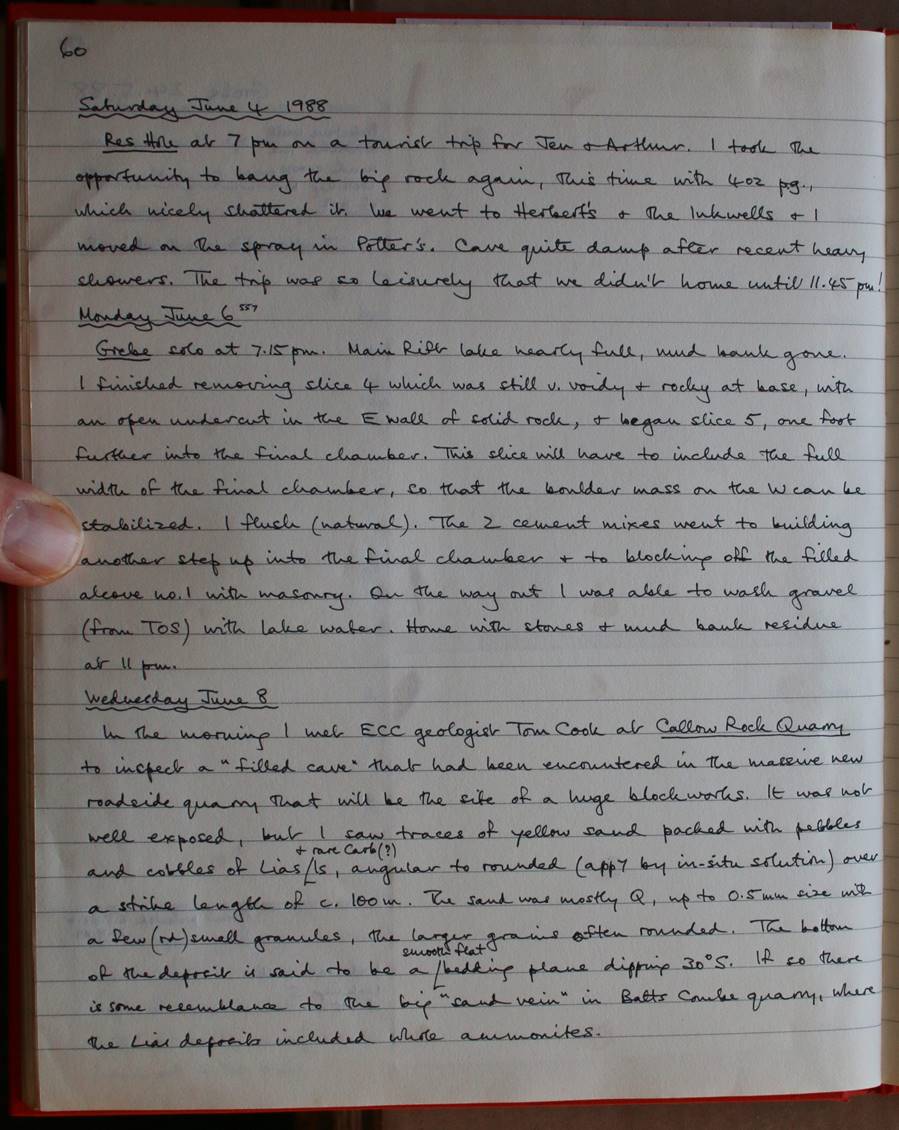 60
Saturday June 4 1988
Res Hole at 7 pm on a tourist trip for Jen & Arthur. I took the
opportunity to bang the big rock again, this time with 4oz pg.,
which nicely shattered it. We went to Herbert's & the Inkwells & I
moved on the spray in Potter's. Cave quite damp after recent heavy
showers. The trip was so leisurely that we didn't home until 11.45 pm!
Monday June 6 557
Grebe solo at 7.15 pm. Main Rift lake nearly full, mud bank gone.
I finished removing slice 4 which was still v. voidy & rocky at base, with
an open undercut in the E wall of solid rock, & began slice 5, one foot
further into the final chamber. This slice will have to include the full
width of the final chamber, so that the boulder mass on the W can be
stabilized. 1 flush (natural). The 2 cement mixes went to building
another step up into the final chamber & to blocking off the filled
alcove no.1 with masonry. On the way out I was able to wash gravel
(from TOS) with lake water. Home with stones & mud bank residue
at 11 pm.
Wednesday June 8
In the morning I met ECC geologist Tom Cook at Callow Rock Quarry
to inspect a "filled cave" that had been encountered in the massive new
roadside quarry that will be the site of a huge blockworks. It was not
well exposed, but I saw traces of yellow sand packed with pebbles
+ rare Carb(?)
and cobbles of Lias/ls, angular to rounded (appy by in-situ solution) over
a strike length of c. 100 m. The sand was mostly Q, up to 0.5 mm size with
a few (rd) small granules, the larger grains often rounded. The bottom
smooth flat
of the deposit is said to be a bedding plane dipping 30°S. If so there
is some resemblance to the big "sand vein" in Batts Combe quarry, where
the Lias deposits included whole ammonites.